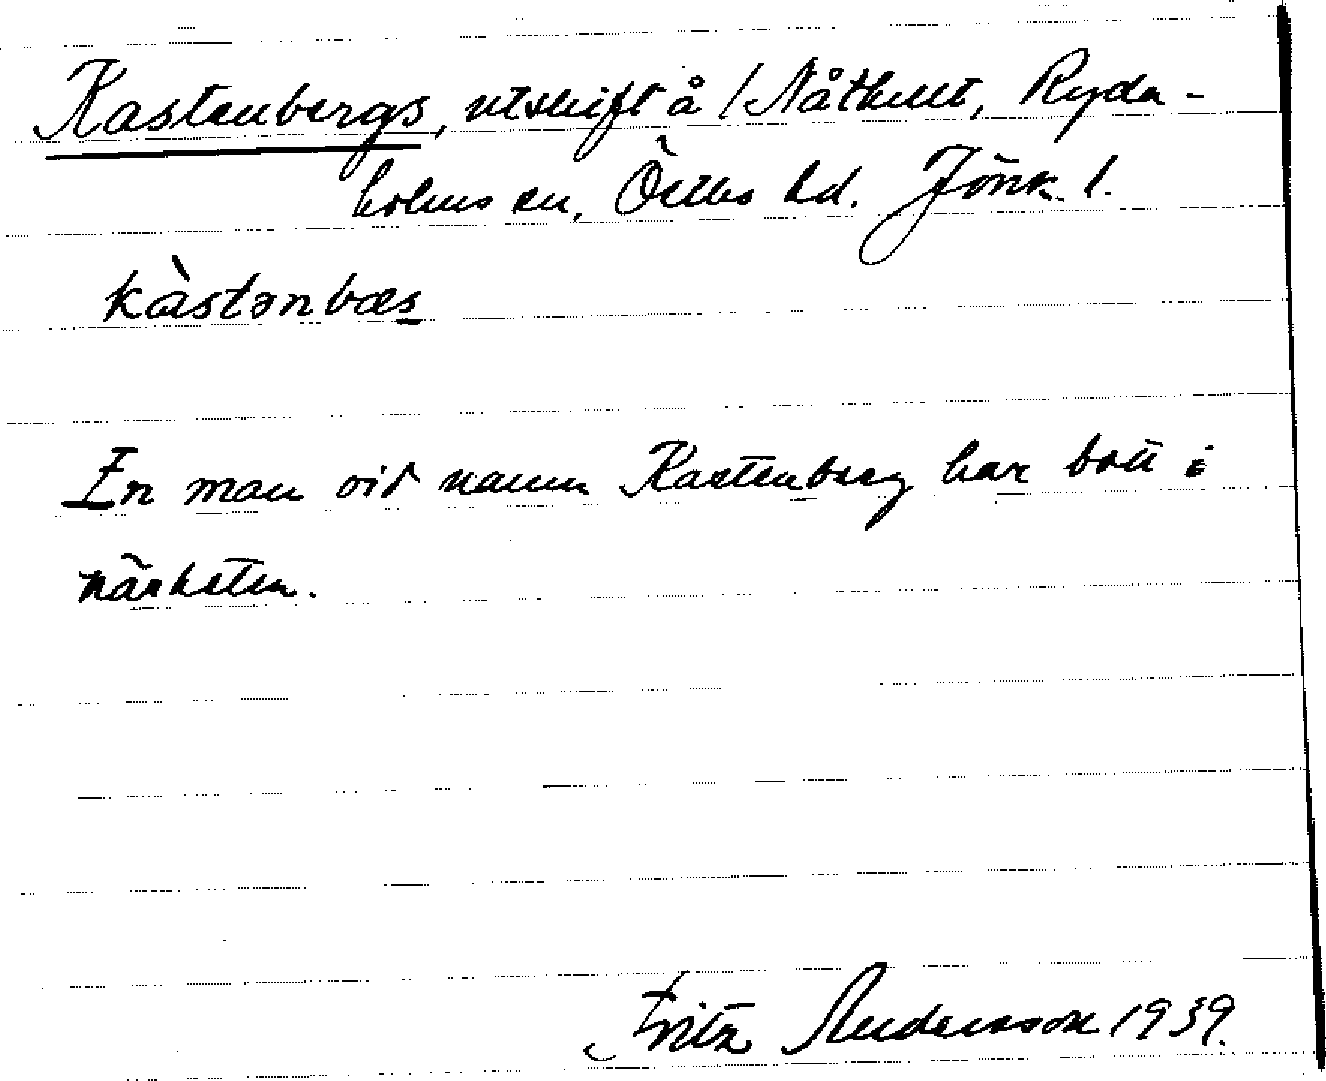 Kastenbergs, utskift å /Nåthult, Ryda-
holms sn, Östbo hd. Jönk. l.
kàstənbæs
En man vid namn Kastenberg har bott i
närheten.
Fritz Andersson 1939.